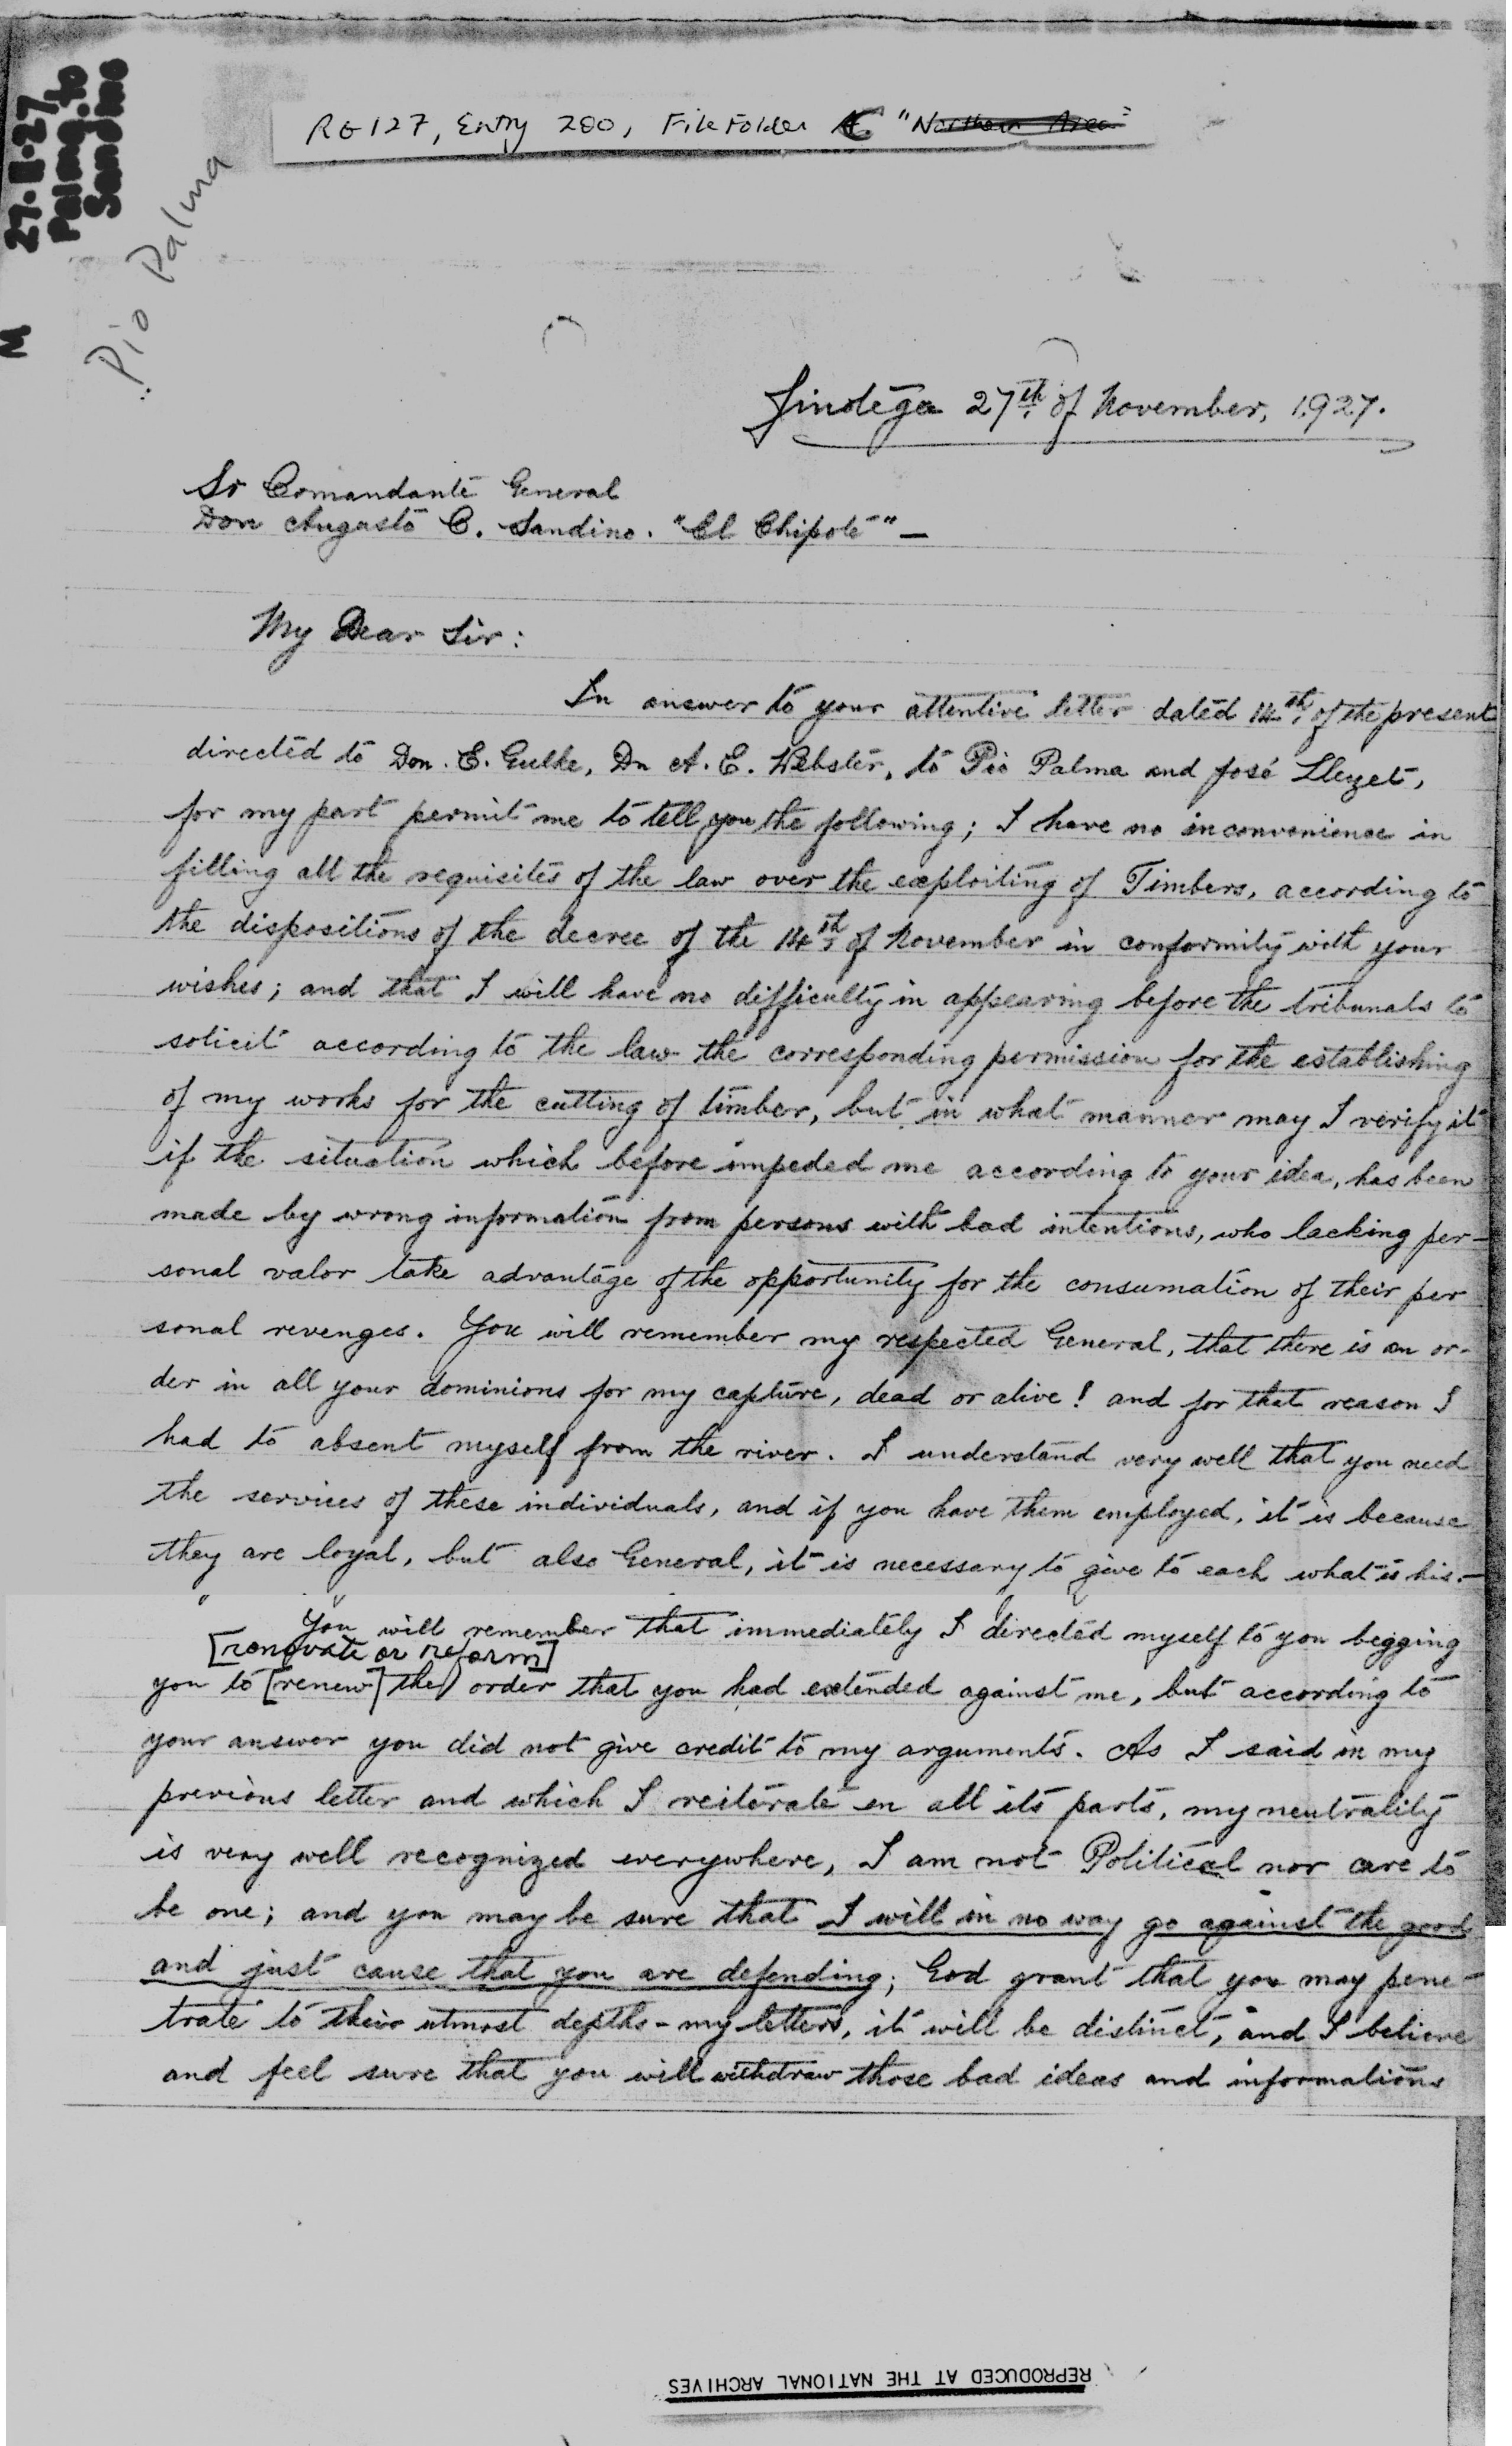 RG127, Entry 200, File Folder C "Northern Area"
27.11.27
Palma to
Sandino
Pio Palma
M
Jinotega 27th of November, 1927.
Sr Comandante General
Don Augusto C. Sandino. "El Chipote" —
My Dear Sir:
In answer to your attentive letter dated 14th, of the present
directed to Don. E. Gulke, Dn A. E. Webster, to Pio Palma and José Lleyet,
for my part permit me to tell you the following; I have no inconvenience in
filling all the requisites of the law over the exploiting of Timbers, according to
the dispositions of the decree of the 14th of November in conformity with your
wishes; and that I will have no difficulty in appearing before the tribunals to
solicit according to the law the corresponding permission for the establishing
of my works for the cutting of timber, but in what manner may I verify it
if the situation which before impeded me according to your idea, has been
made by wrong information from persons with bad intentions, who lacking per-
sonal valor take advantage of the opportunity for the consumation of their per
sonal revenges. You will remember my respected General, that there is an or-
der in all your dominions for my capture, dead or alive! and for that reason I
had to absent myself from the river. I understand very well that you need
the services of these individuals, and if you have them employed, it is because
they are loyal, but also General, it is necessary to give to each what is his.—
You will remember that immediately I directed myself to you begging
[renovate or reform]
you to [renew] the order that you had extended against me, but according to
your answer you did not give credit to my arguments. As I said in my
previous letter and which I reiterate en all its parts, my neutrality
is very well recognized everywhere, I am not Political nor care to
be one; and you may be sure that I will in no way go against the good
and just cause that you are defending; God grant that you may pene-
trate to their utmost depths - my letters, it will be distinct, and I believe
and feel sure that you will withdraw those bad ideas and informations
REPRODUCED AT THE NATIONAL ARCHIVES